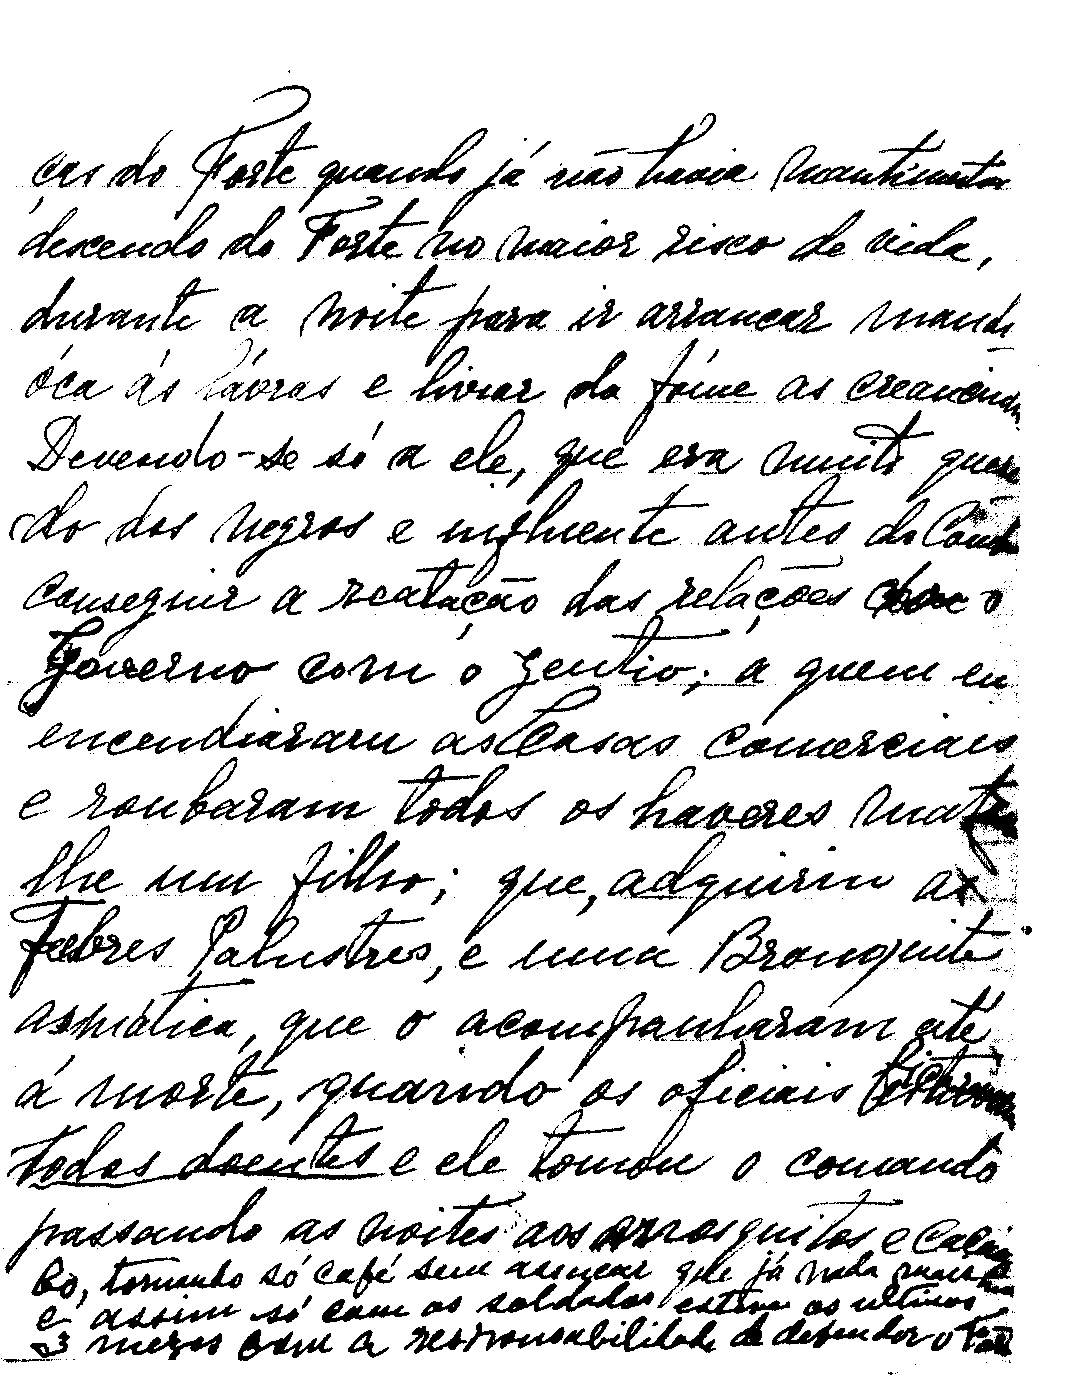 ças do Forte quando já não havia mantimentos
descendo do Forte no maior risco de vida,
durante a noite para ir arrancar mandi
óca ás lávras e livrar da fóme as creancinhas
Devendo-se só a ele, que era muito queri
do dos negros e influente antes do
conseguir a reatação das relações o
Governo com o gentio; a quem
encendiaram as Casas comerciais
e roubaram todos os haveres
lhe um filho; que, adquiriu as
Febres Palustres, e uma Bronquite
asmática, que o acompanharam até
á morte, quando os oficiais
todos doentes e ele tomou o comando
passando as noites aos mosquitos e
bo, tomando só café sem assucar que já nada mais
e assim só com os soldados esteve os ultimos
3 mezes com a responsabilidade de defender o Forte